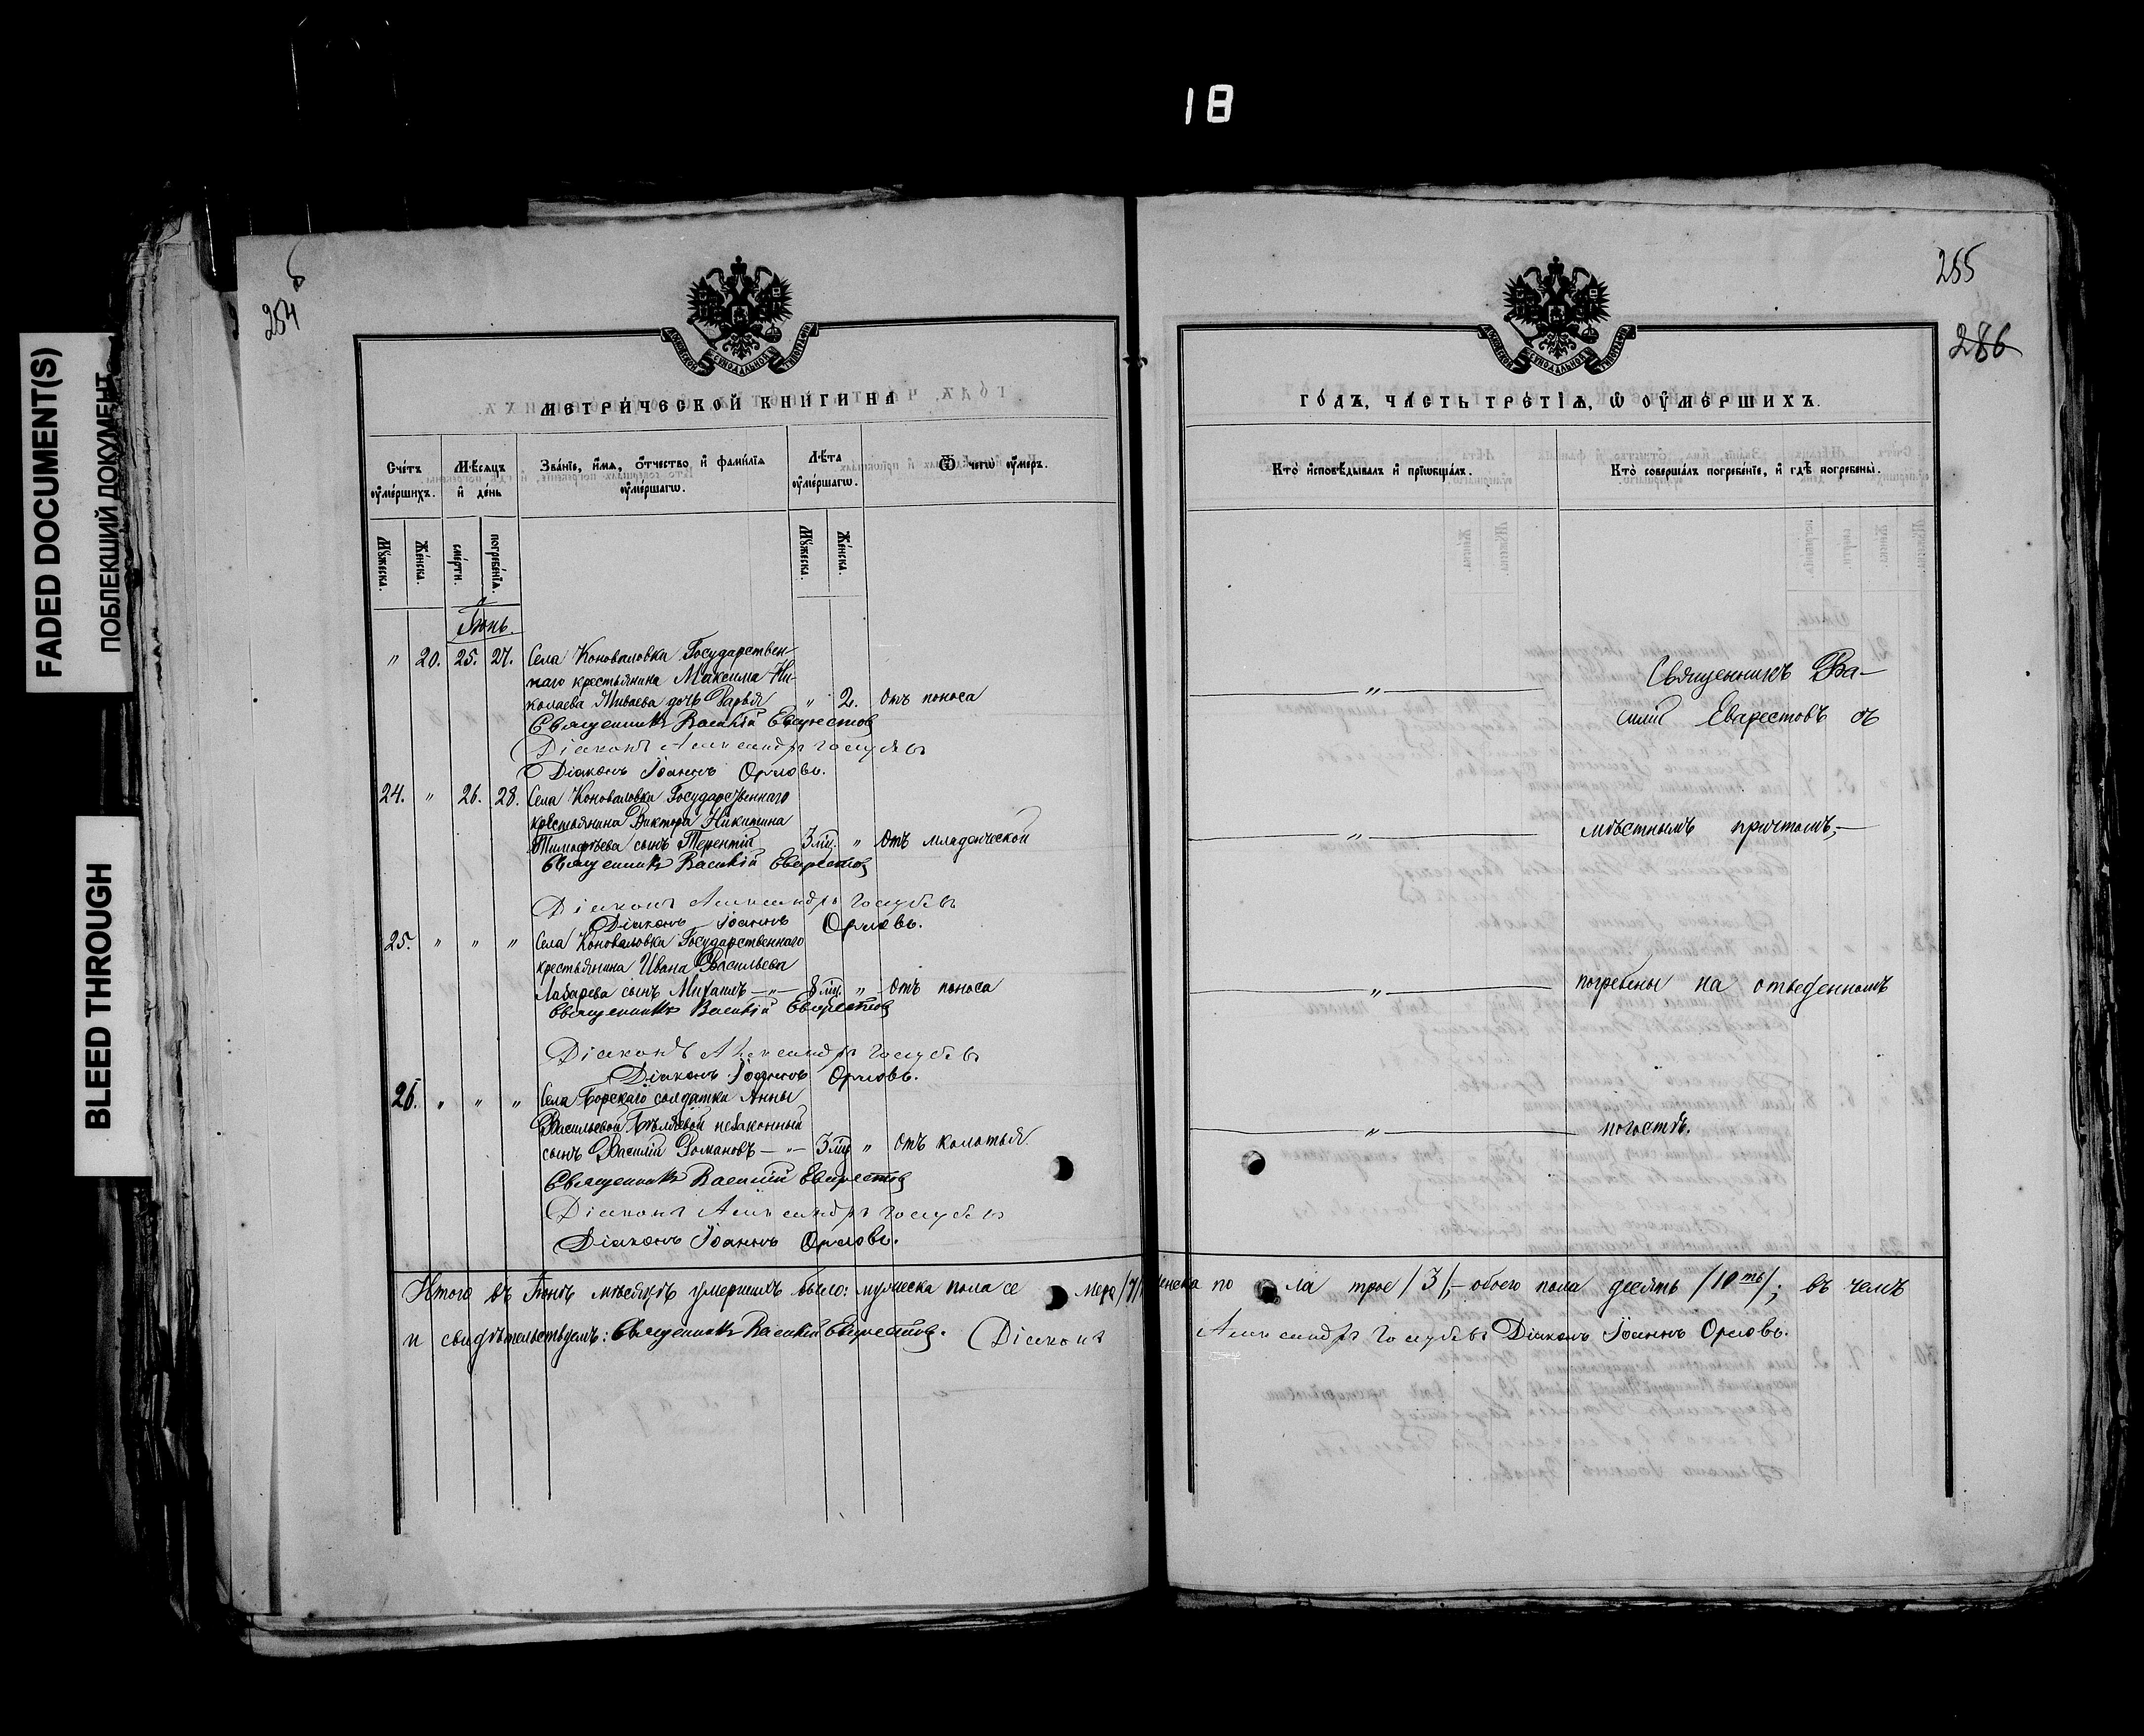 18
FADED DOCUMENT(S)
ПОБЛЕКШИЙ ДОКУМЕНТ
BLEED THROUGH
254
255
286
МЕТРИ́ЧЕСКОЙ КНИ́ГИ НА
Сче́тъ оу҆ме́ршихъ.
Мѣ́сяцъ и҆ де́нь
Зва́нїе, и҆́мѧ, ѻ҆́тчество и҆ фами́лїѧ оу҆ме́ршагѡ.
Лѣ́та оу҆ме́ршагѡ.
Ѿ чегѡ̀ оу҆́меръ.
Мꙋ́жеска.
Же́нска.
сме́рти.
погребе́нїѧ.
Мꙋ́жеска.
Же́нска.
Іюнь.
" 20. 25. 27. Села Коноваловки Государствен-
наго крестьянина Максима Ни-
колаева Миваева дочь Дарья " 2. Отъ поноса
Священникъ Василій Еварестовъ
Діаконъ Александръ Голубевъ
Діаконъ Іоаннъ Орловъ.
24. " 26. 28. Села Коноваловки Государственнаго
крестьянина Виктора Никитина
Тимофѣева сынъ Терентій 3 мц. " Отъ младенческой
Священникъ Василій Еварестовъ
Діаконъ Александръ Голубевъ
Діаконъ Іоаннъ Орловъ.
25. " " " Села Коноваловки Государственнаго
крестьянина Ивана Васильева
Лазарева сынъ Михаилъ — " — 8 мц. " Отъ поноса
Священникъ Василій Еварестовъ
Діаконъ Александръ Голубевъ
Діаконъ Іоаннъ Орловъ.
26. " " " Села Борскаго солдатки Анны
Васильевой Бѣляевой незаконный
сынъ Василій Романовъ — " — 3 мц " Отъ колотья
Священникъ Василій Еварестовъ
Діаконъ Александръ Голубевъ
Діаконъ Іоаннъ Орловъ.
ГО́ДЪ, ЧА́СТЬ ТРЕ́ТЇѦ, Ѡ҆ ОУ҆МЕ́РШИХЪ.
Кто̀ и҆сповѣ́дывалъ и҆ прїѡбща́лъ.
Кто̀ соверша́лъ погребе́нїе, и҆ гдѣ̀ погребены̀.
" Священникъ Ва-
силій Еварестовъ съ
" мѣстнымъ причтомъ,—
" погребены на отведенномъ
" погостѣ.
Итого въ Іюнѣ мѣсяцѣ умершихъ было: мужеска пола семеро /7/ женска пола трое /3/,— обоего пола десять /10ть/; въ чемъ
и свидѣтельствуемъ: Священникъ Василій Еварестовъ. Діаконъ Александръ Голубевъ Діаконъ Іоаннъ Орловъ.